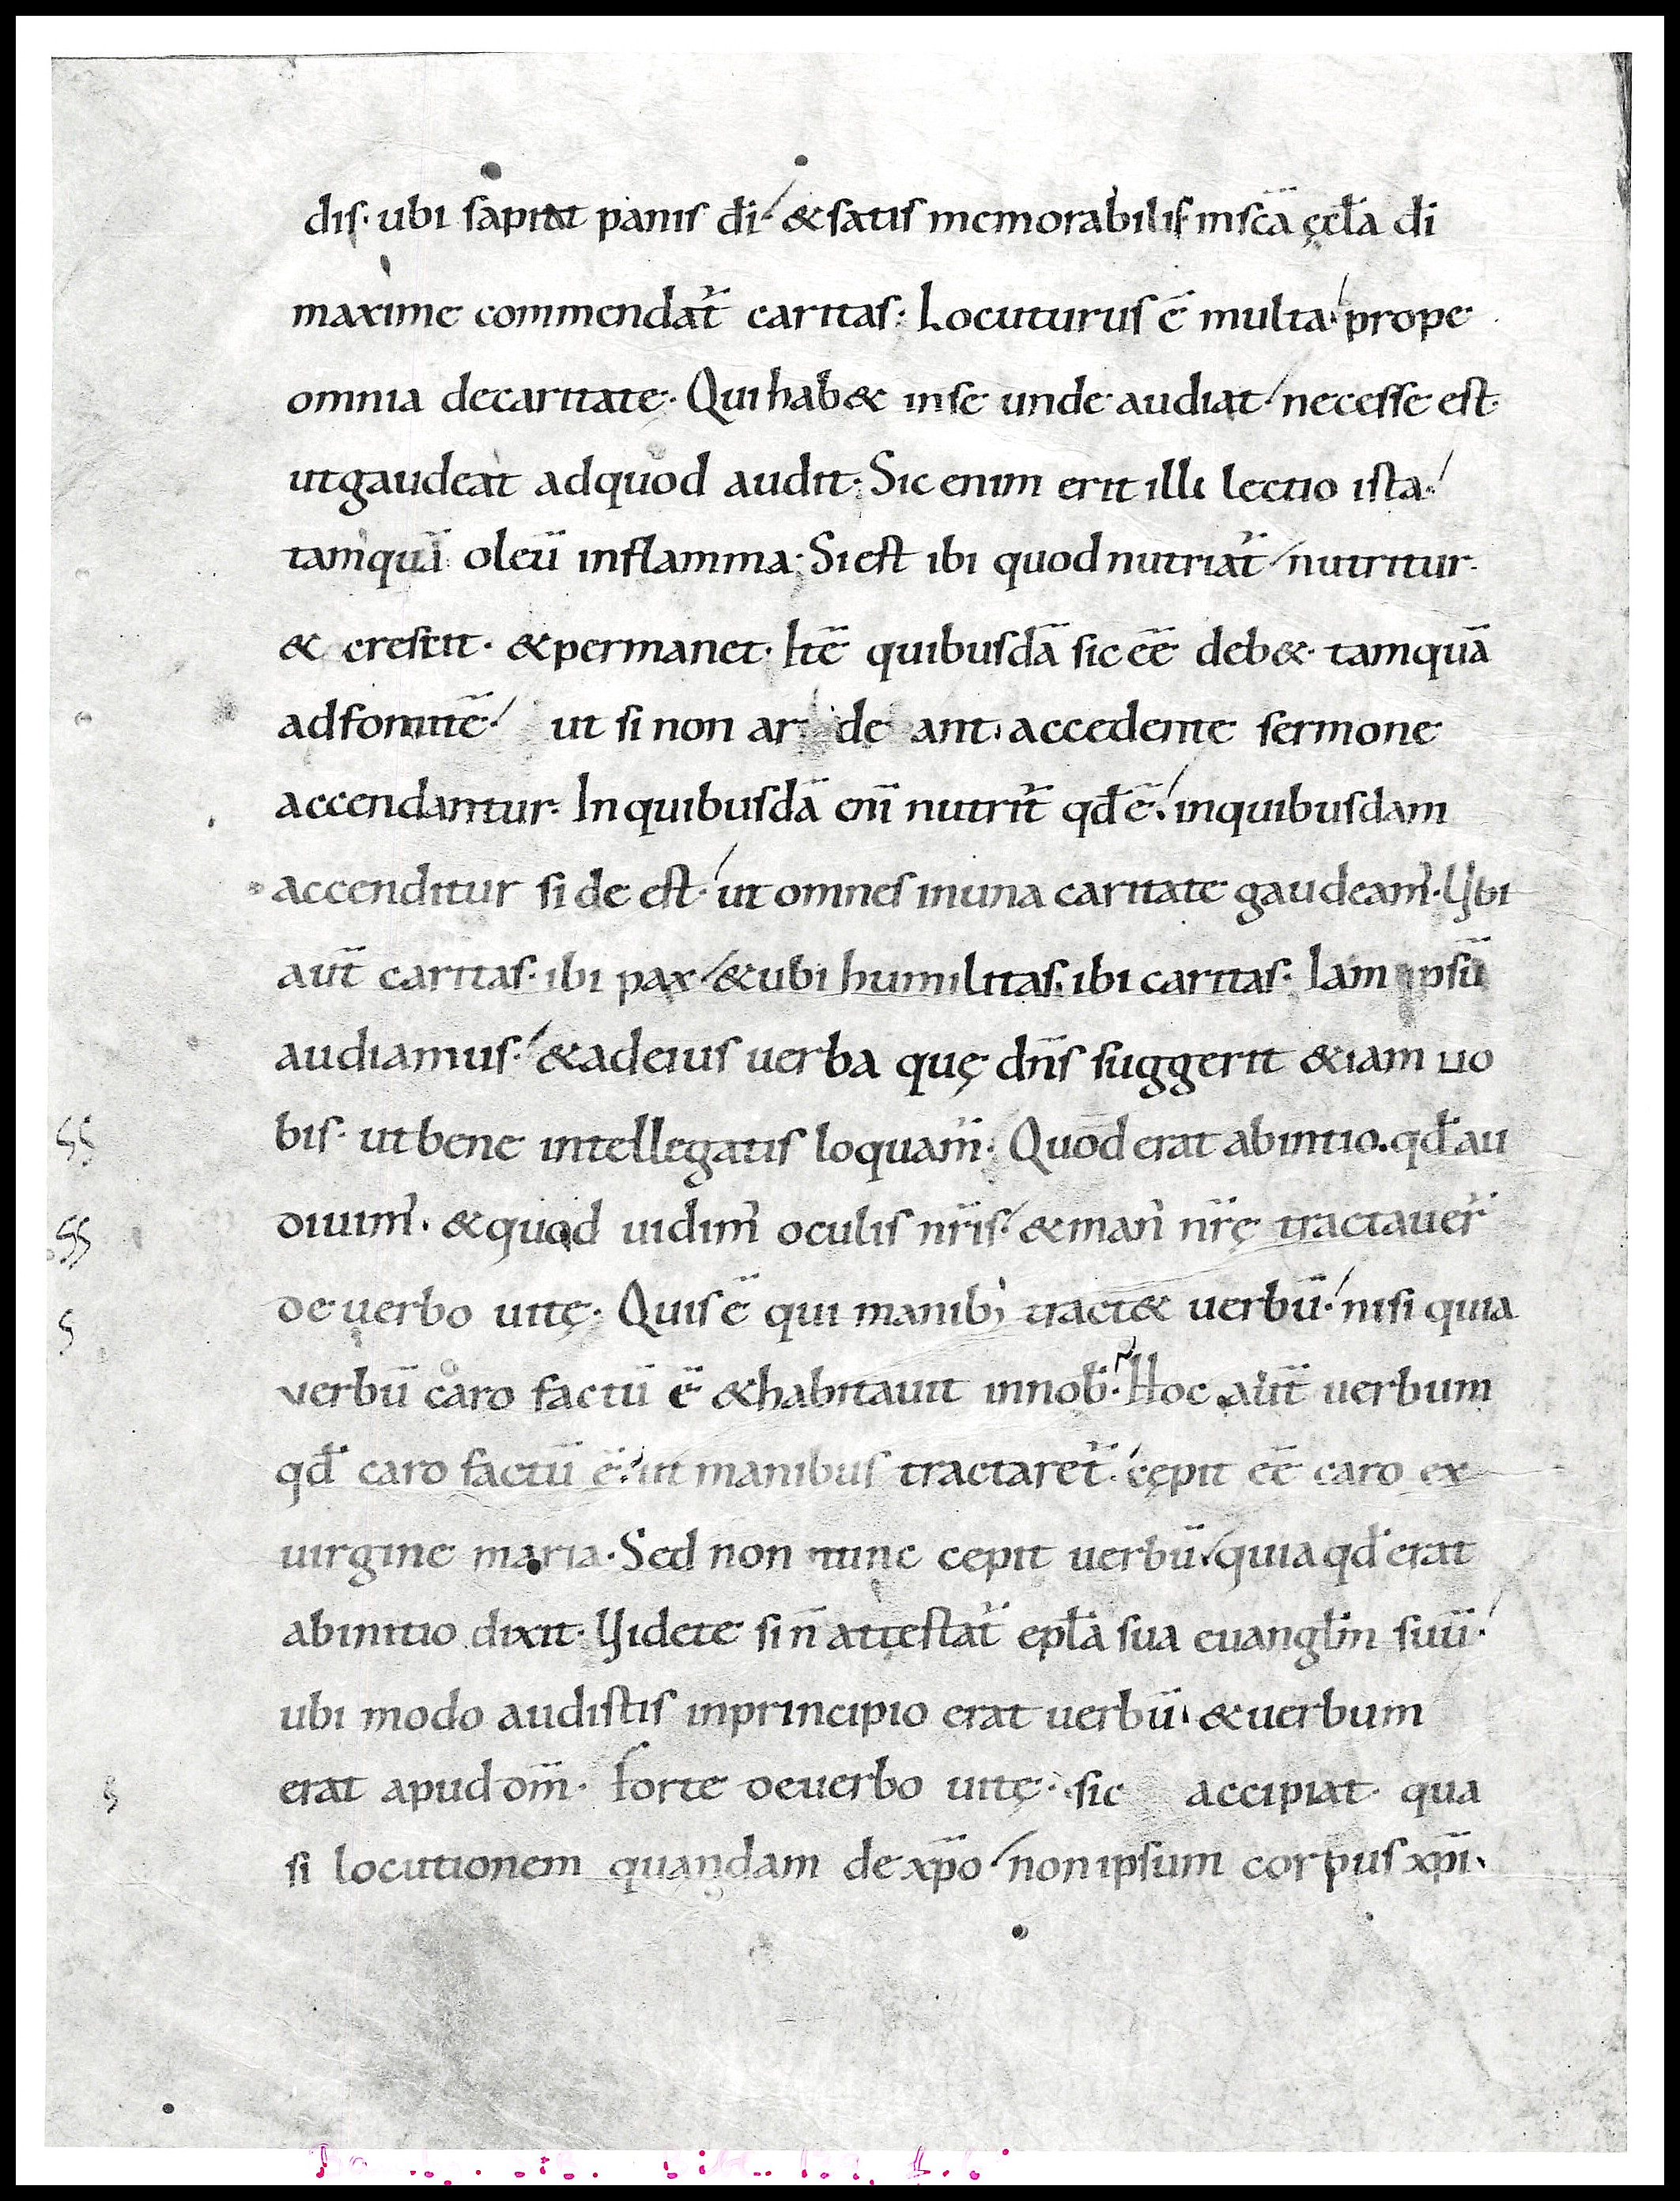 dis· ubi sapiat panis di̅· & satis memorabilis· in sc̅a ęcl̅a di̅
maxime commendat̅ caritas· Locuturus e̅ multa· prope
omnia decaritate· Qui hab& inse unde audiat· necesse est·
utgaudeat adquod audit· Sic enim erit illi lectio ista·
tamqua̅ oleu̅ inflamma· Si est ibi quod nutriat̅· nutritur·
& crescit· & permanet· Ite̅ quibusda̅ sic ee̅ deb& tamqua̅
adfomite̅· ut si non ardeant, accedente sermone
accendantur· In quibusda̅ eni̅ nutrit̅ qd̅ e̅· inquibusdam
accenditur si de est· ut omnes inuna caritate gaudeam̓· Ubi
aut̅ caritas· ibi pax· & ubi humilitas, ibi caritas· Iam ipsu̅
audiamus· & adeius uerba quę dn̅s suggerit & iam uo
bis· utbene intellegatis loquam̅· Quod erat abinitio· qd̅ au
diuim̓· & quod uidim̓ oculis nr̅is· & man̓ nr̅ę tractauer̅
de uerbo uitę· Quis e̅ qui manib; tract& uerbu̅· nisi quia
verbu̅ caro factu̅ e̅ & habitauit innob̅· Hoc aut̅ uerbum
qd̅ caro factu̅ e̅· ut manibus tractaret̅· cępit ee̅ caro ex
uirgine maria· Sed non nunc cepit uerbu̅· quia qd̅ erat
abinitio dixit· Uidete si n̅ attestat̅ epl̅a sua euangl̅m suu̅·
ubi modo audistis inprincipio erat uerbu̅, & uerbum
erat apud dm̅· Forte deuerbo uitę· sic accipiat· qua
si locutionem quandam de xp̅o· non ipsum corpus xp̅i·